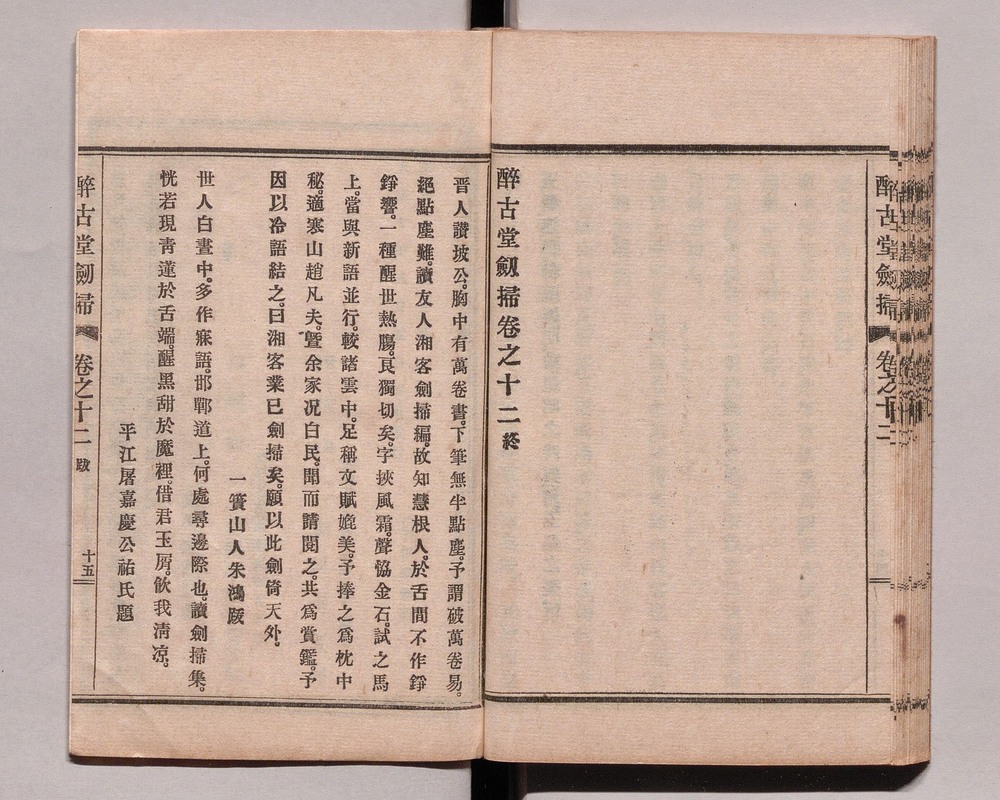 醉古堂劔掃 卷之十二
醉古堂劔掃卷之十二終
晋人讚坡公。胸中有萬卷書。下筆無半點塵。予謂破萬卷易。
絕點塵難。讀友人湘客劍掃編。故知慧根人。於舌間不作錚
錚響。一種醒世熱膓。良獨切矣。字挾風霜。聲恊金石。試之馬
上。當與新語並行。較諸雲中。足稱文賦娩美。予捧之爲枕中
秘。適寒山趙凡夫。曁余家况白民。聞而請閱之。共爲賞鑑。予
因以冷語結之。曰湘客業已劍掃矣。願以此劍倚天外。
一簣山人朱鴻跋
世人白晝中。多作寐語。邯鄲道上。何處尋邊際也。讀劍掃集。
恍若現靑蓮於舌端。醒黑甜於魔裡。借君玉屑。飮我淸凉。
平江屠嘉慶公祐氏題
醉古堂劔掃 卷之十二 跋 十五